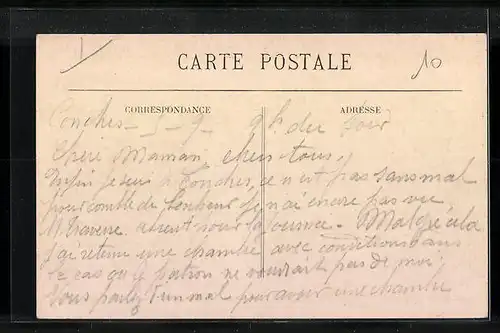 10
CARTE POSTALE
CORRESPONDANCE
ADRESSE
Conches - 5 - 9 - 9h. du soir
Chère Maman, chers tous,
Enfin je suis à Conches, ce n'est pas sans mal
pour comble de bonheur je n'ai encore pas vu
M. absent pour la journée. Malgré cela
j'ai retenu une chambre avec conditions dans
le cas où patron ne voudrait pas de moi
Vous parlez d'un mal pour avoir une chambre